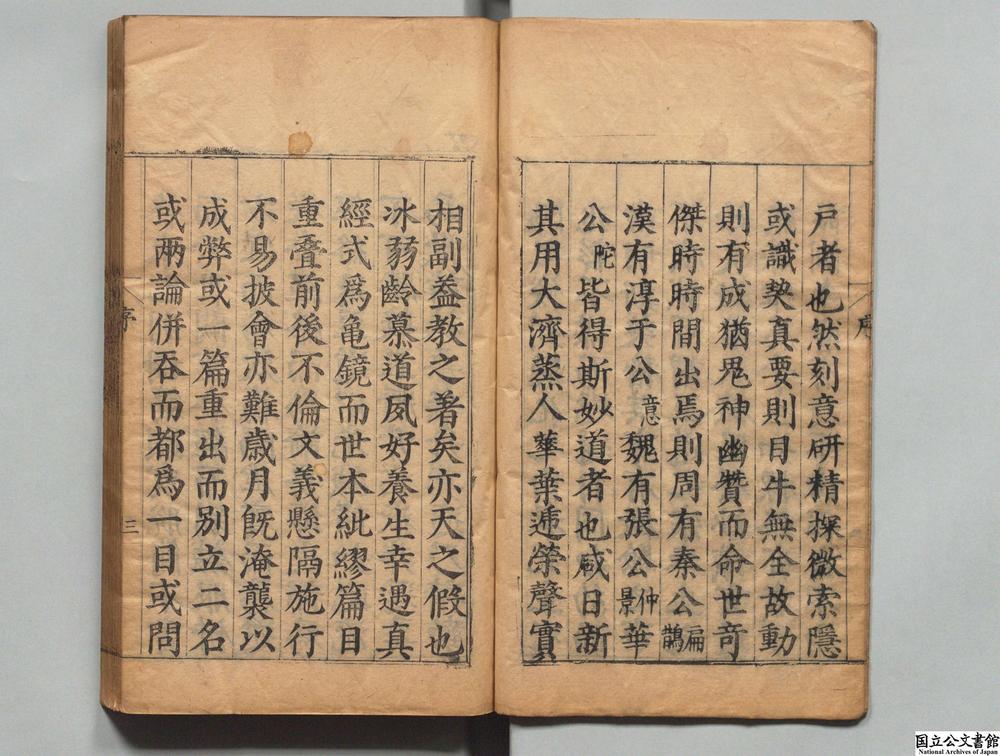 戶者也然刻意研精探微索隱
或識契真要則目牛無全故動
則有成猶鬼神幽贊而命世竒
傑時時間出焉則周有秦公扁鵲
漢有淳于公意魏有張公仲景華
公陀皆得斯妙道者也咸日新
其用大濟蒸人華葉遞榮聲實
序
相副葢教之著矣亦天之假也
冰弱齡慕道夙好養生幸遇真
經式爲亀鏡而世本紕繆篇目
重疊前後不倫文義懸隔施行
不易披會亦難歲月旣淹襲以
成弊或一篇重出而別立二名
或兩論併吞而都爲一目或問
序
三
国立公文書館
National Archives of Japan